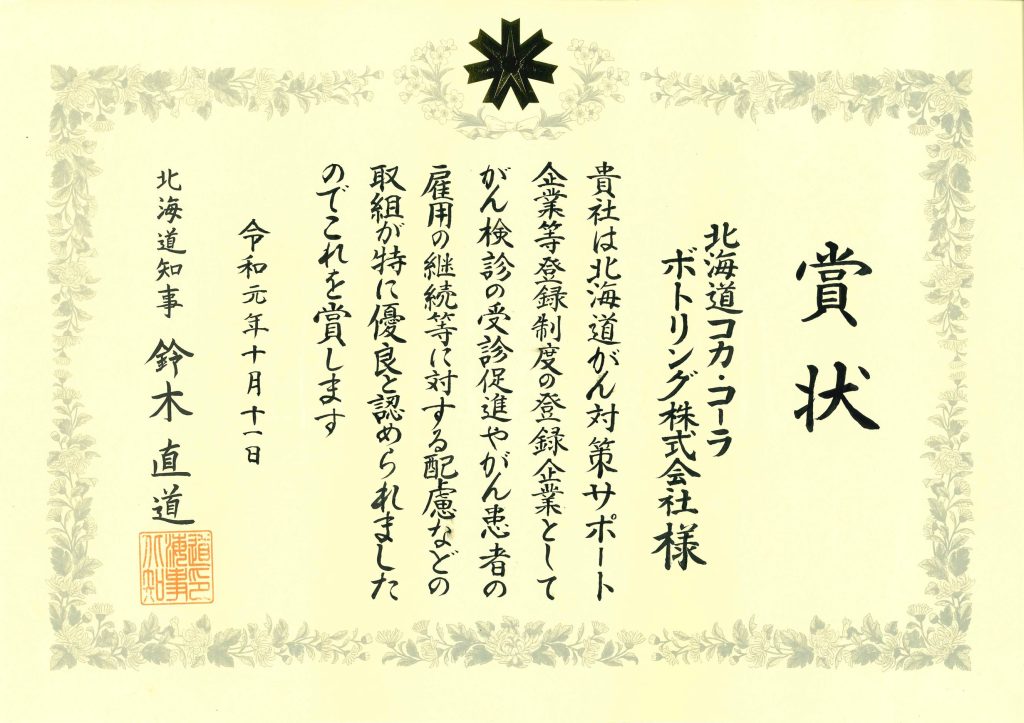 賞状
北海道コカ・コーラ
ボトリング株式会社 様
貴社は北海道がん対策サポート
企業等登録制度の登録企業として
がん検診の受診促進やがん患者の
雇用の継続等に対する配慮などの
取組が特に優良と認められました
のでこれを賞します
令和元年十月十一日
北海道知事 鈴木直道